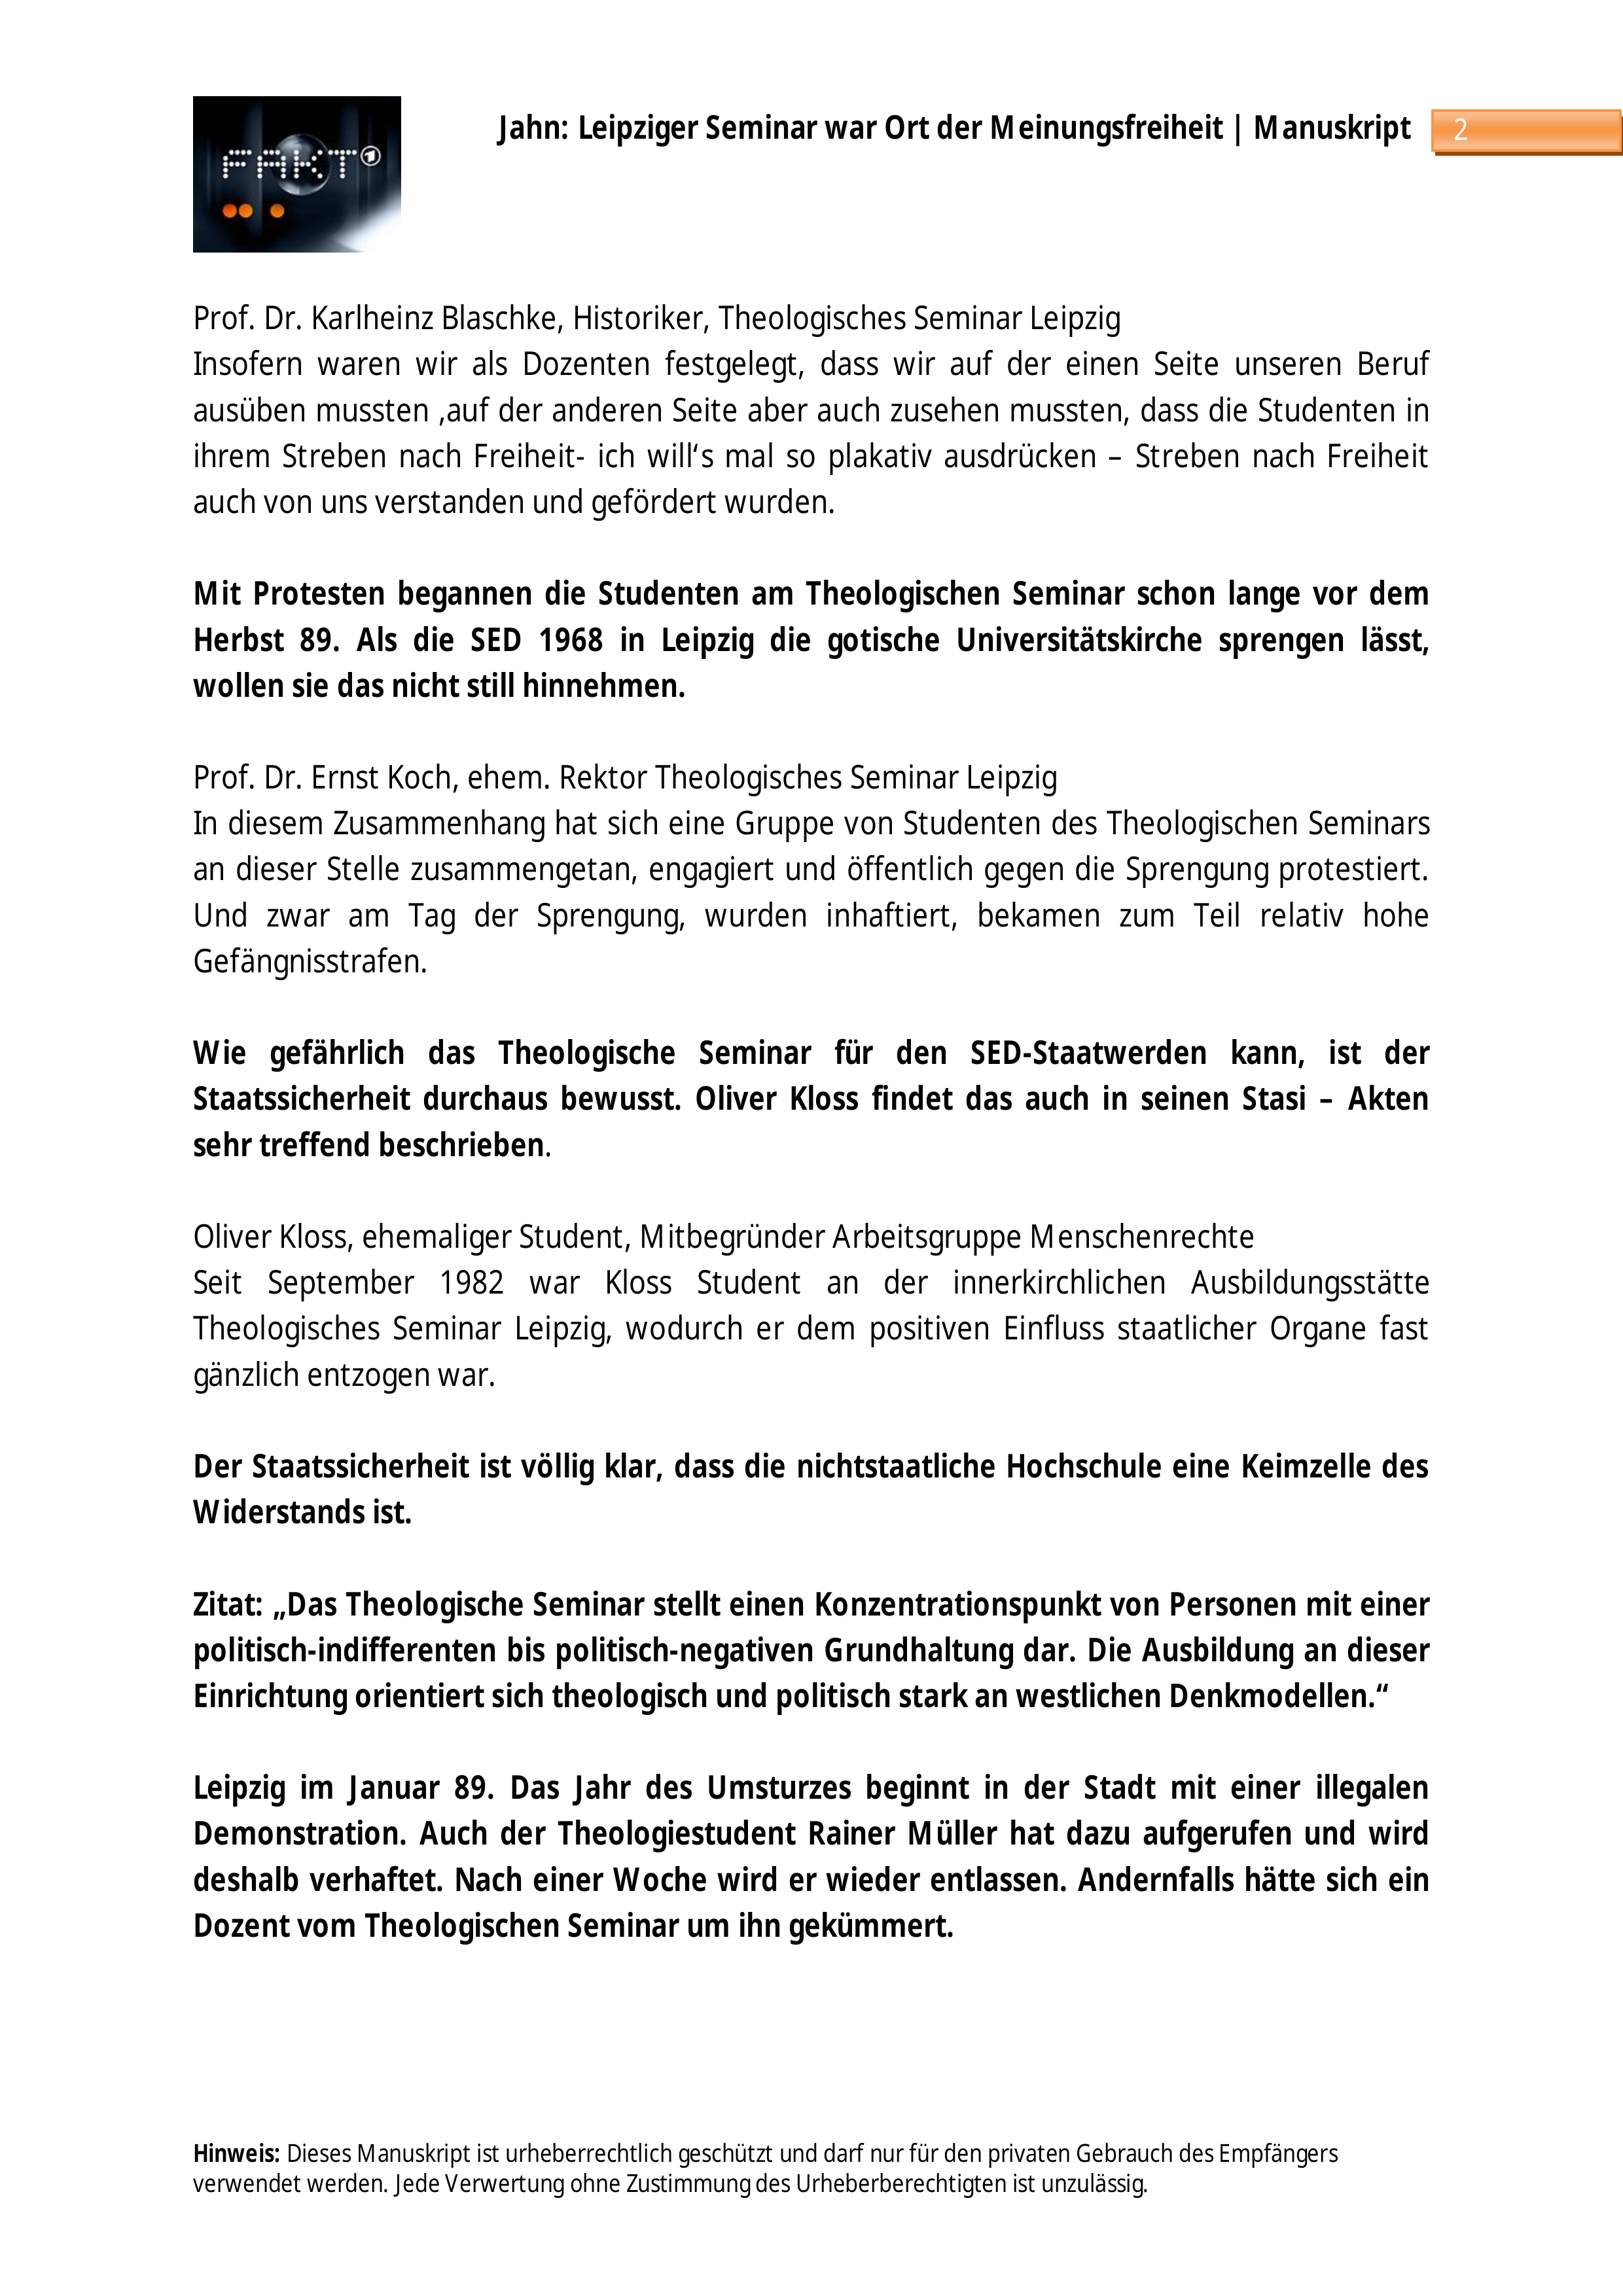 FAKT
Jahn: Leipziger Seminar war Ort der Meinungsfreiheit | Manuskript
2
Prof. Dr. Karlheinz Blaschke, Historiker, Theologisches Seminar Leipzig
Insofern waren wir als Dozenten festgelegt, dass wir auf der einen Seite unseren Beruf
ausüben mussten ‚auf der anderen Seite aber auch zusehen mussten, dass die Studenten in
ihrem Streben nach Freiheit- ich will‘s mal so plakativ ausdrücken – Streben nach Freiheit
auch von uns verstanden und gefördert wurden.
Mit Protesten begannen die Studenten am Theologischen Seminar schon lange vor dem
Herbst 89. Als die SED 1968 in Leipzig die gotische Universitätskirche sprengen lässt,
wollen sie das nicht still hinnehmen.
Prof. Dr. Ernst Koch, ehem. Rektor Theologisches Seminar Leipzig
In diesem Zusammenhang hat sich eine Gruppe von Studenten des Theologischen Seminars
an dieser Stelle zusammengetan, engagiert und öffentlich gegen die Sprengung protestiert.
Und zwar am Tag der Sprengung, wurden inhaftiert, bekamen zum Teil relativ hohe
Gefängnisstrafen.
Wie gefährlich das Theologische Seminar für den SED-Staatwerden kann, ist der
Staatssicherheit durchaus bewusst. Oliver Kloss findet das auch in seinen Stasi – Akten
sehr treffend beschrieben.
Oliver Kloss, ehemaliger Student, Mitbegründer Arbeitsgruppe Menschenrechte
Seit September 1982 war Kloss Student an der innerkirchlichen Ausbildungsstätte
Theologisches Seminar Leipzig, wodurch er dem positiven Einfluss staatlicher Organe fast
gänzlich entzogen war.
Der Staatssicherheit ist völlig klar, dass die nichtstaatliche Hochschule eine Keimzelle des
Widerstands ist.
Zitat: „Das Theologische Seminar stellt einen Konzentrationspunkt von Personen mit einer
politisch-indifferenten bis politisch-negativen Grundhaltung dar. Die Ausbildung an dieser
Einrichtung orientiert sich theologisch und politisch stark an westlichen Denkmodellen.“
Leipzig im Januar 89. Das Jahr des Umsturzes beginnt in der Stadt mit einer illegalen
Demonstration. Auch der Theologiestudent Rainer Müller hat dazu aufgerufen und wird
deshalb verhaftet. Nach einer Woche wird er wieder entlassen. Andernfalls hätte sich ein
Dozent vom Theologischen Seminar um ihn gekümmert.
Hinweis: Dieses Manuskript ist urheberrechtlich geschützt und darf nur für den privaten Gebrauch des Empfängers
verwendet werden. Jede Verwertung ohne Zustimmung des Urheberberechtigten ist unzulässig.